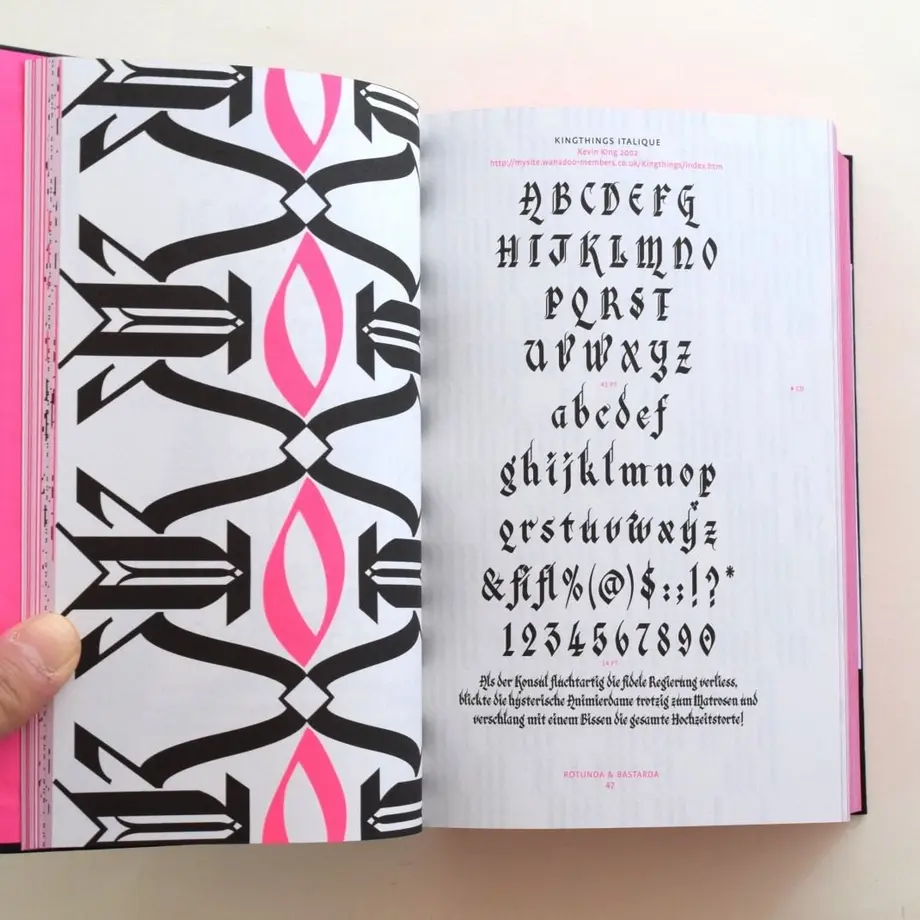 KINGTHINGS ITALIQUE
Kevin King 2002
http://mysite.wanadoo-members.co.uk/Kingthings/index.htm
ABCDEFG
HIJKLMNO
PQRST
UVWXYZ
42 PT
abcdef
ghijklmnop
qrstuvwxyz
&fifl%(@)$:;!?*
1234567890
14 PT
Als der Konsul fluchtartig die fidele Regierung verliess,
blickte die hysterische Animierdame trotzig zum Matrosen und
verschlang mit einem Bissen die gesamte Hochzeitstorte!
CD
ROTUNDA & BASTARDA
42